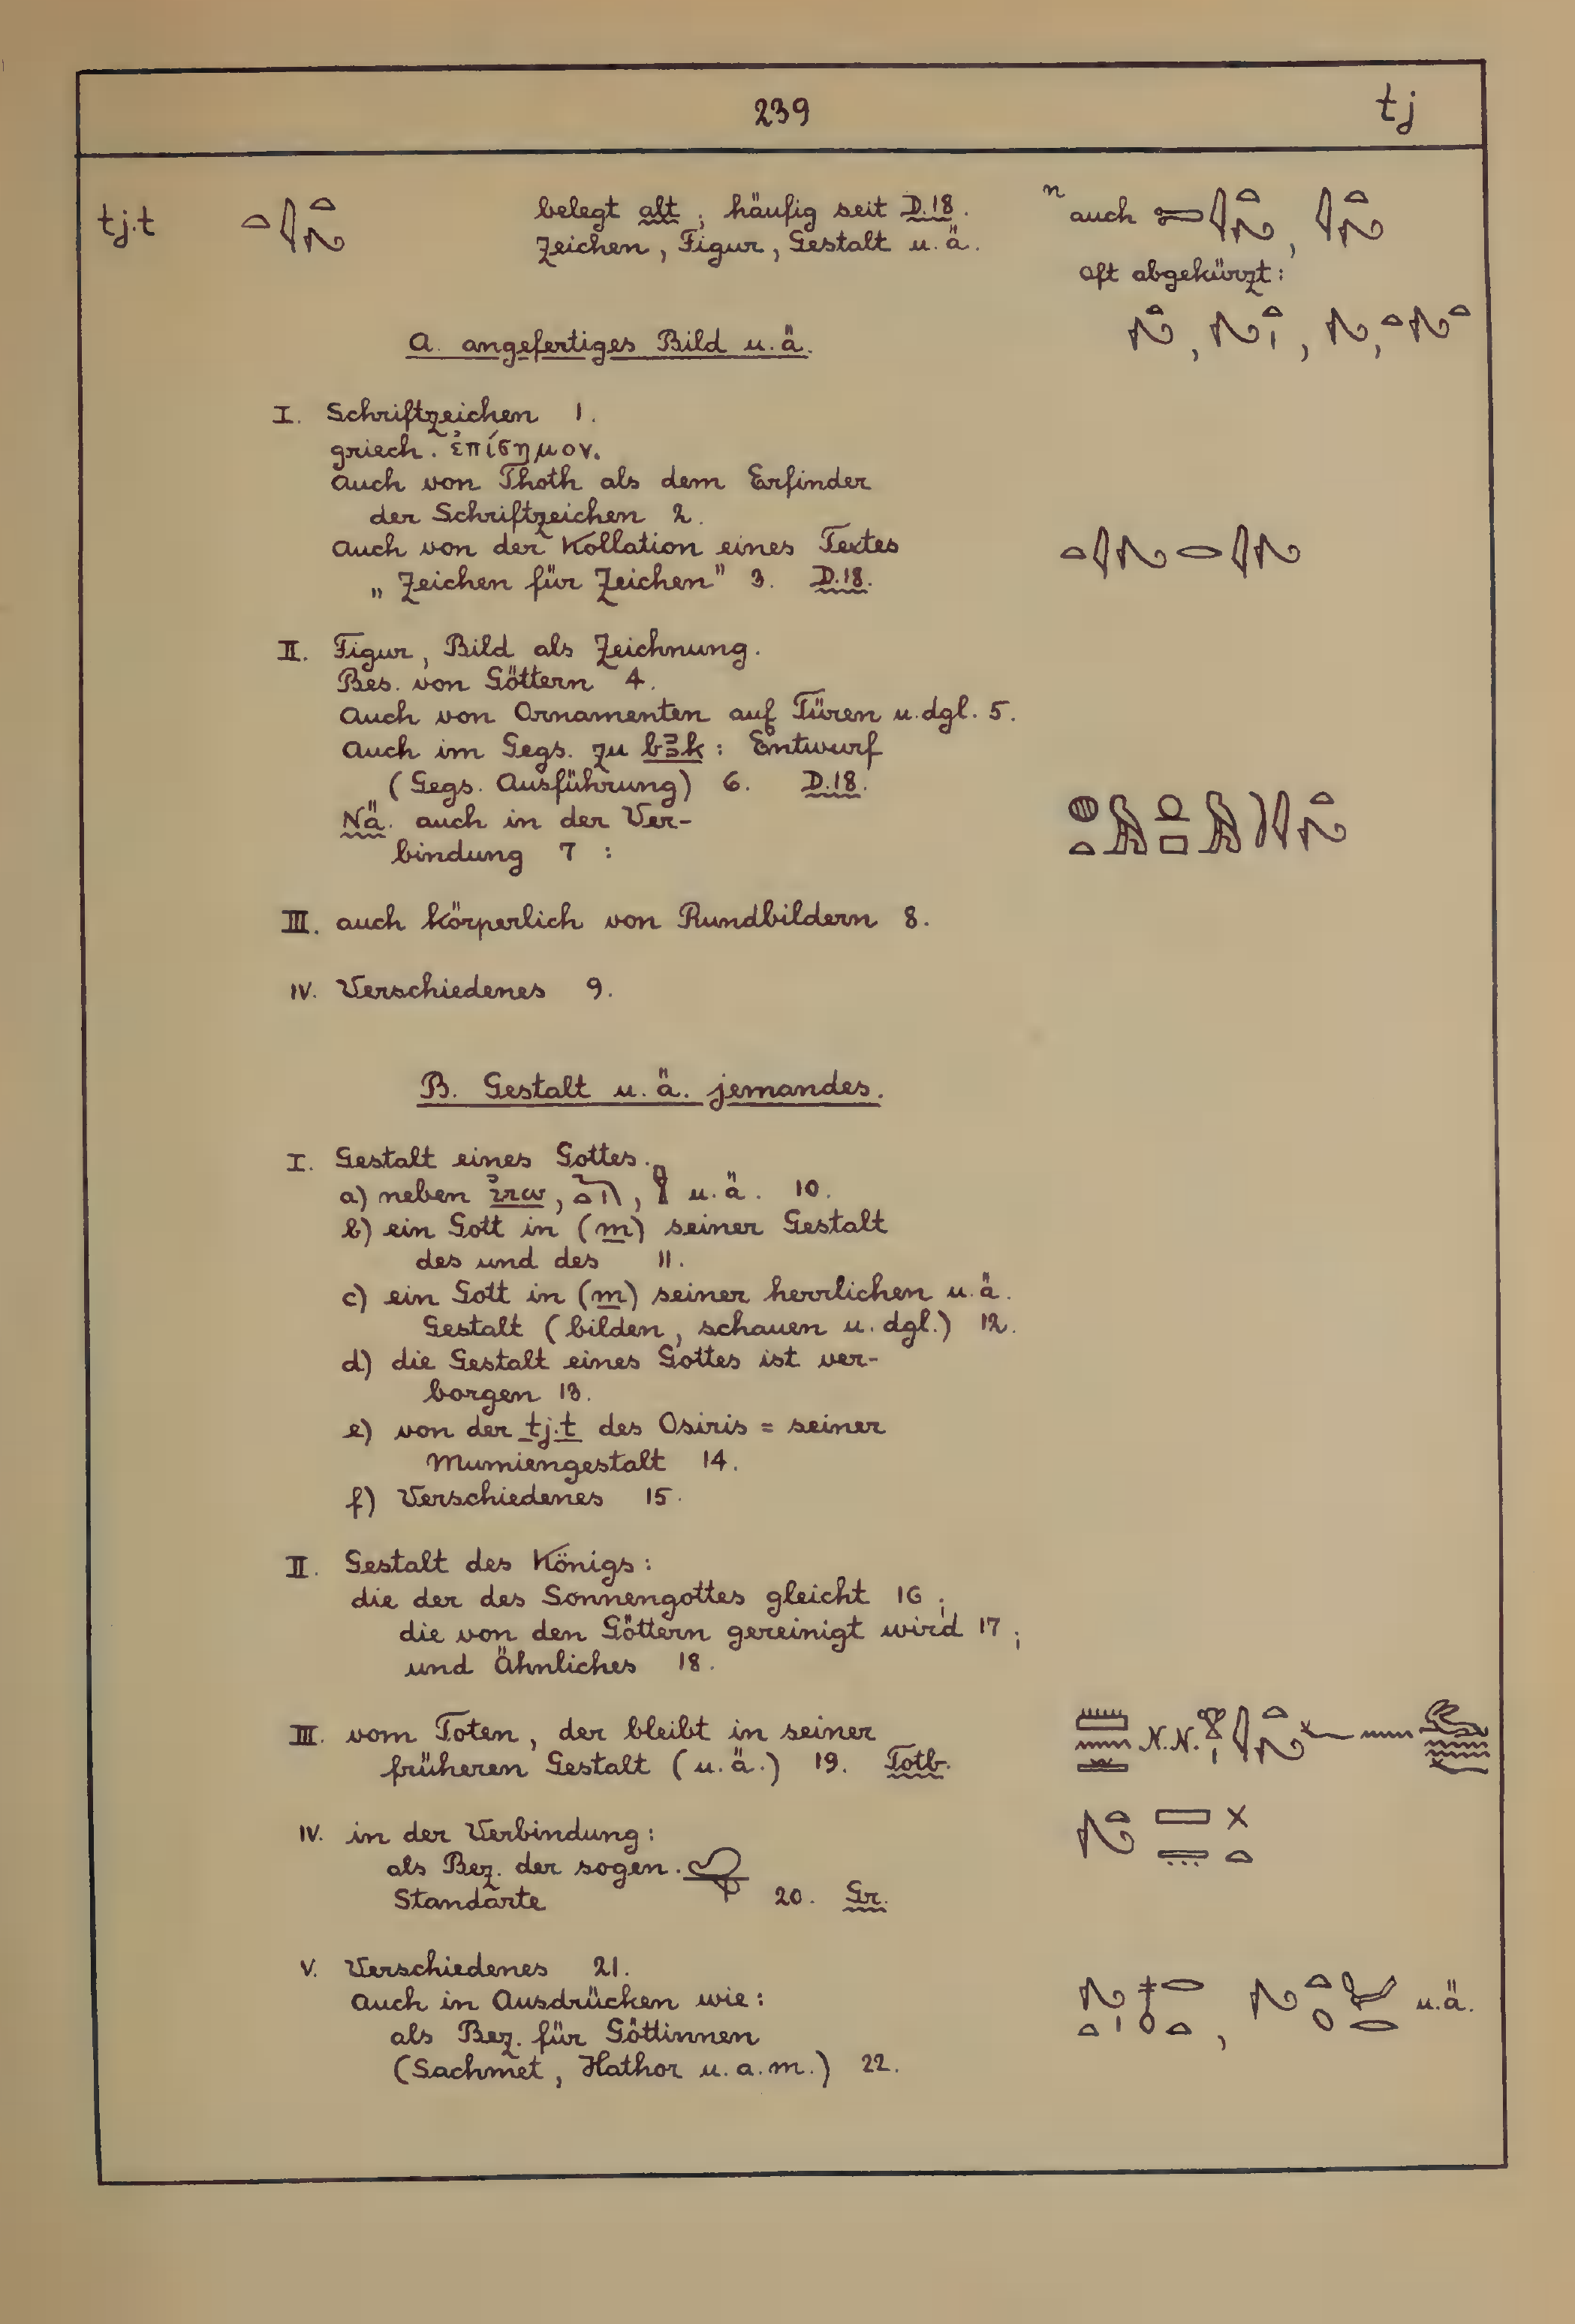 239
tj
tj.t
belegt alt ; häufig seit D.18.
Zeichen, Figur, Gestalt u.ä.
n auch
oft abgekürzt:
A. angefertiges Bild u.ä.
I. Schriftzeichen 1.
griech. ἐπίσημον.
Auch von Thoth als dem Erfinder
der Schriftzeichen 2.
Auch von der Kollation eines Textes
„Zeichen für Zeichen" 3. D.18.
II. Figur, Bild als Zeichnung.
Bes. von Göttern 4.
Auch von Ornamenten auf Türen u.dgl. 5.
Auch im Gegs. zu bꜣk: Entwurf
(Gegs. Ausführung) 6. D.18.
Nä. auch in der Ver-
bindung 7 :
III. auch körperlich von Rundbildern 8.
IV. Verschiedenes 9.
B. Gestalt u.ä. jemandes.
I. Gestalt eines Gottes.
a) neben ı͗rw, , u.ä. 10.
b) ein Gott in (m) seiner Gestalt
des und des 11.
c) ein Gott in (m) seiner herrlichen u.ä.
Gestalt (bilden, schauen u.dgl.) 12.
d) die Gestalt eines Gottes ist ver-
borgen 13.
e) von der tj.t des Osiris = seiner
Mumiengestalt 14.
f) Verschiedenes 15.
II. Gestalt des Königs:
die der des Sonnengottes gleicht 16 ;
die von den Göttern gereinigt wird 17 ;
und Ähnliches 18.
III. vom Toten, der bleibt in seiner
früheren Gestalt (u.ä.) 19. Totb.
N.N.
IV. in der Verbindung:
als Bez. der sogen.
Standarte 20. Gr.
V. Verschiedenes 21.
Auch in Ausdrücken wie:
u.ä.
als Bez. für Göttinnen
(Sachmet, Hathor u.a.m.) 22.